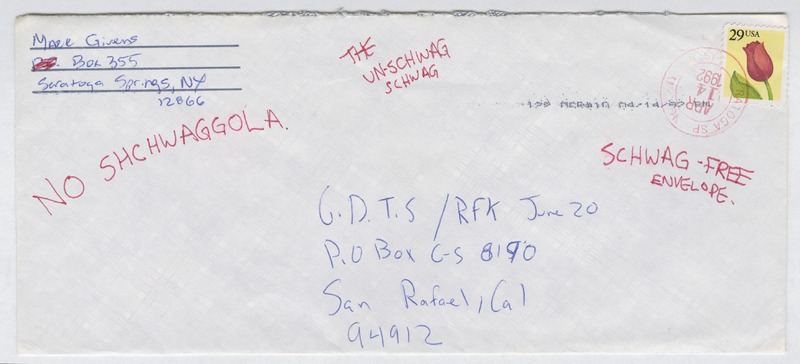 Marc Givens
P.O. Box 355
Saratoga Springs, NY
12866
THE
UN-SCHWAG
SCHWAG
29 USA
APR
14
1992
NO SHCHWAGGOLA.
SCHWAG-FREE
ENVELOPE.
G.D.T.S /RFK June 20
P.O Box C-S 8190
San Rafael, Cal
94912